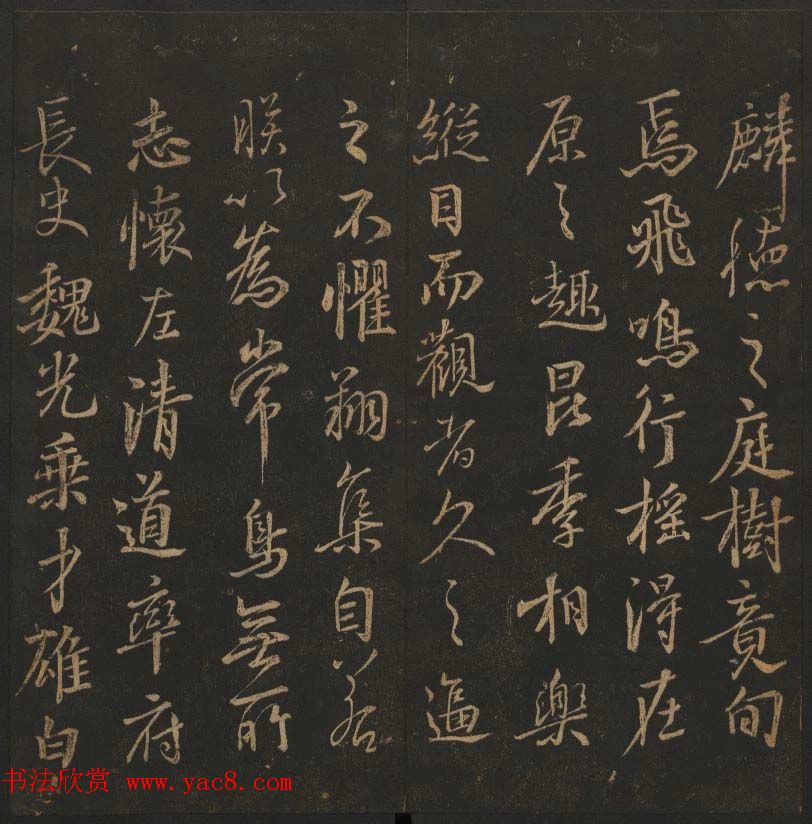 麟德之庭樹竟旬
焉飛鳴行摇得在
原之趣昆季相樂
縱目而觀者久之逼
之不懼翔集自若
朕以為常鳥無所
志懷左清道率府
長史魏光乗才雄白
书法欣赏 www.yac8.com